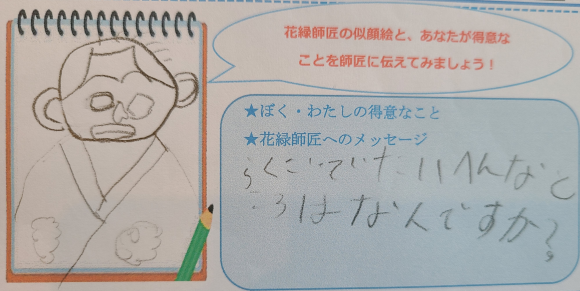 花緑師匠の似顔絵と、あなたが得意な
ことを師匠に伝えてみましょう！
★ぼく・わたしの得意なこと
★花緑師匠へのメッセージ
らくごいでいたいへんなと
ころはなんですか？